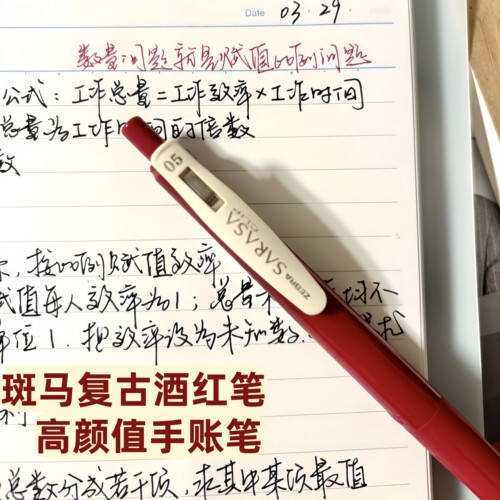 Date 03.29.
数量问题就是赋值比例问题
公式：工作总量=工作效率×工作时间
总量为工作时间的倍数
数
05
ZEBRA SARASA CLIP
，按比例赋值效率
赋值每人效率为1；总量
单位1．把效率设为未知数．
斑马复古酒红笔
高颜值手账笔
总数分成若干项，求其中某项最值